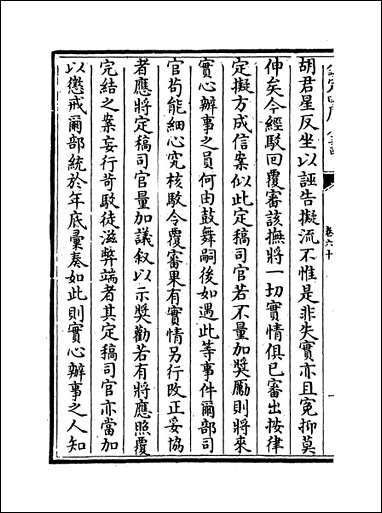 胡君星反坐以誣告擬流不惟是非失實亦且寃抑莫
伸矣今經駁回覆審該撫將一切實情俱已審出按律
定擬方成信案似此定稿司官若不量加奬勵則將來
實心辦事之員何由鼓舞嗣後如遇此等事件爾部司
官苟能細心究核駁令覆審果有實情另行改正妥協
者應將定稿司官量加議叙以示奬勸若有將應照覆
完結之案妄行苛駁徒滋弊端者其定稿司官亦當加
以懲戒爾部統於年底彙奏如此則實心辦事之人知